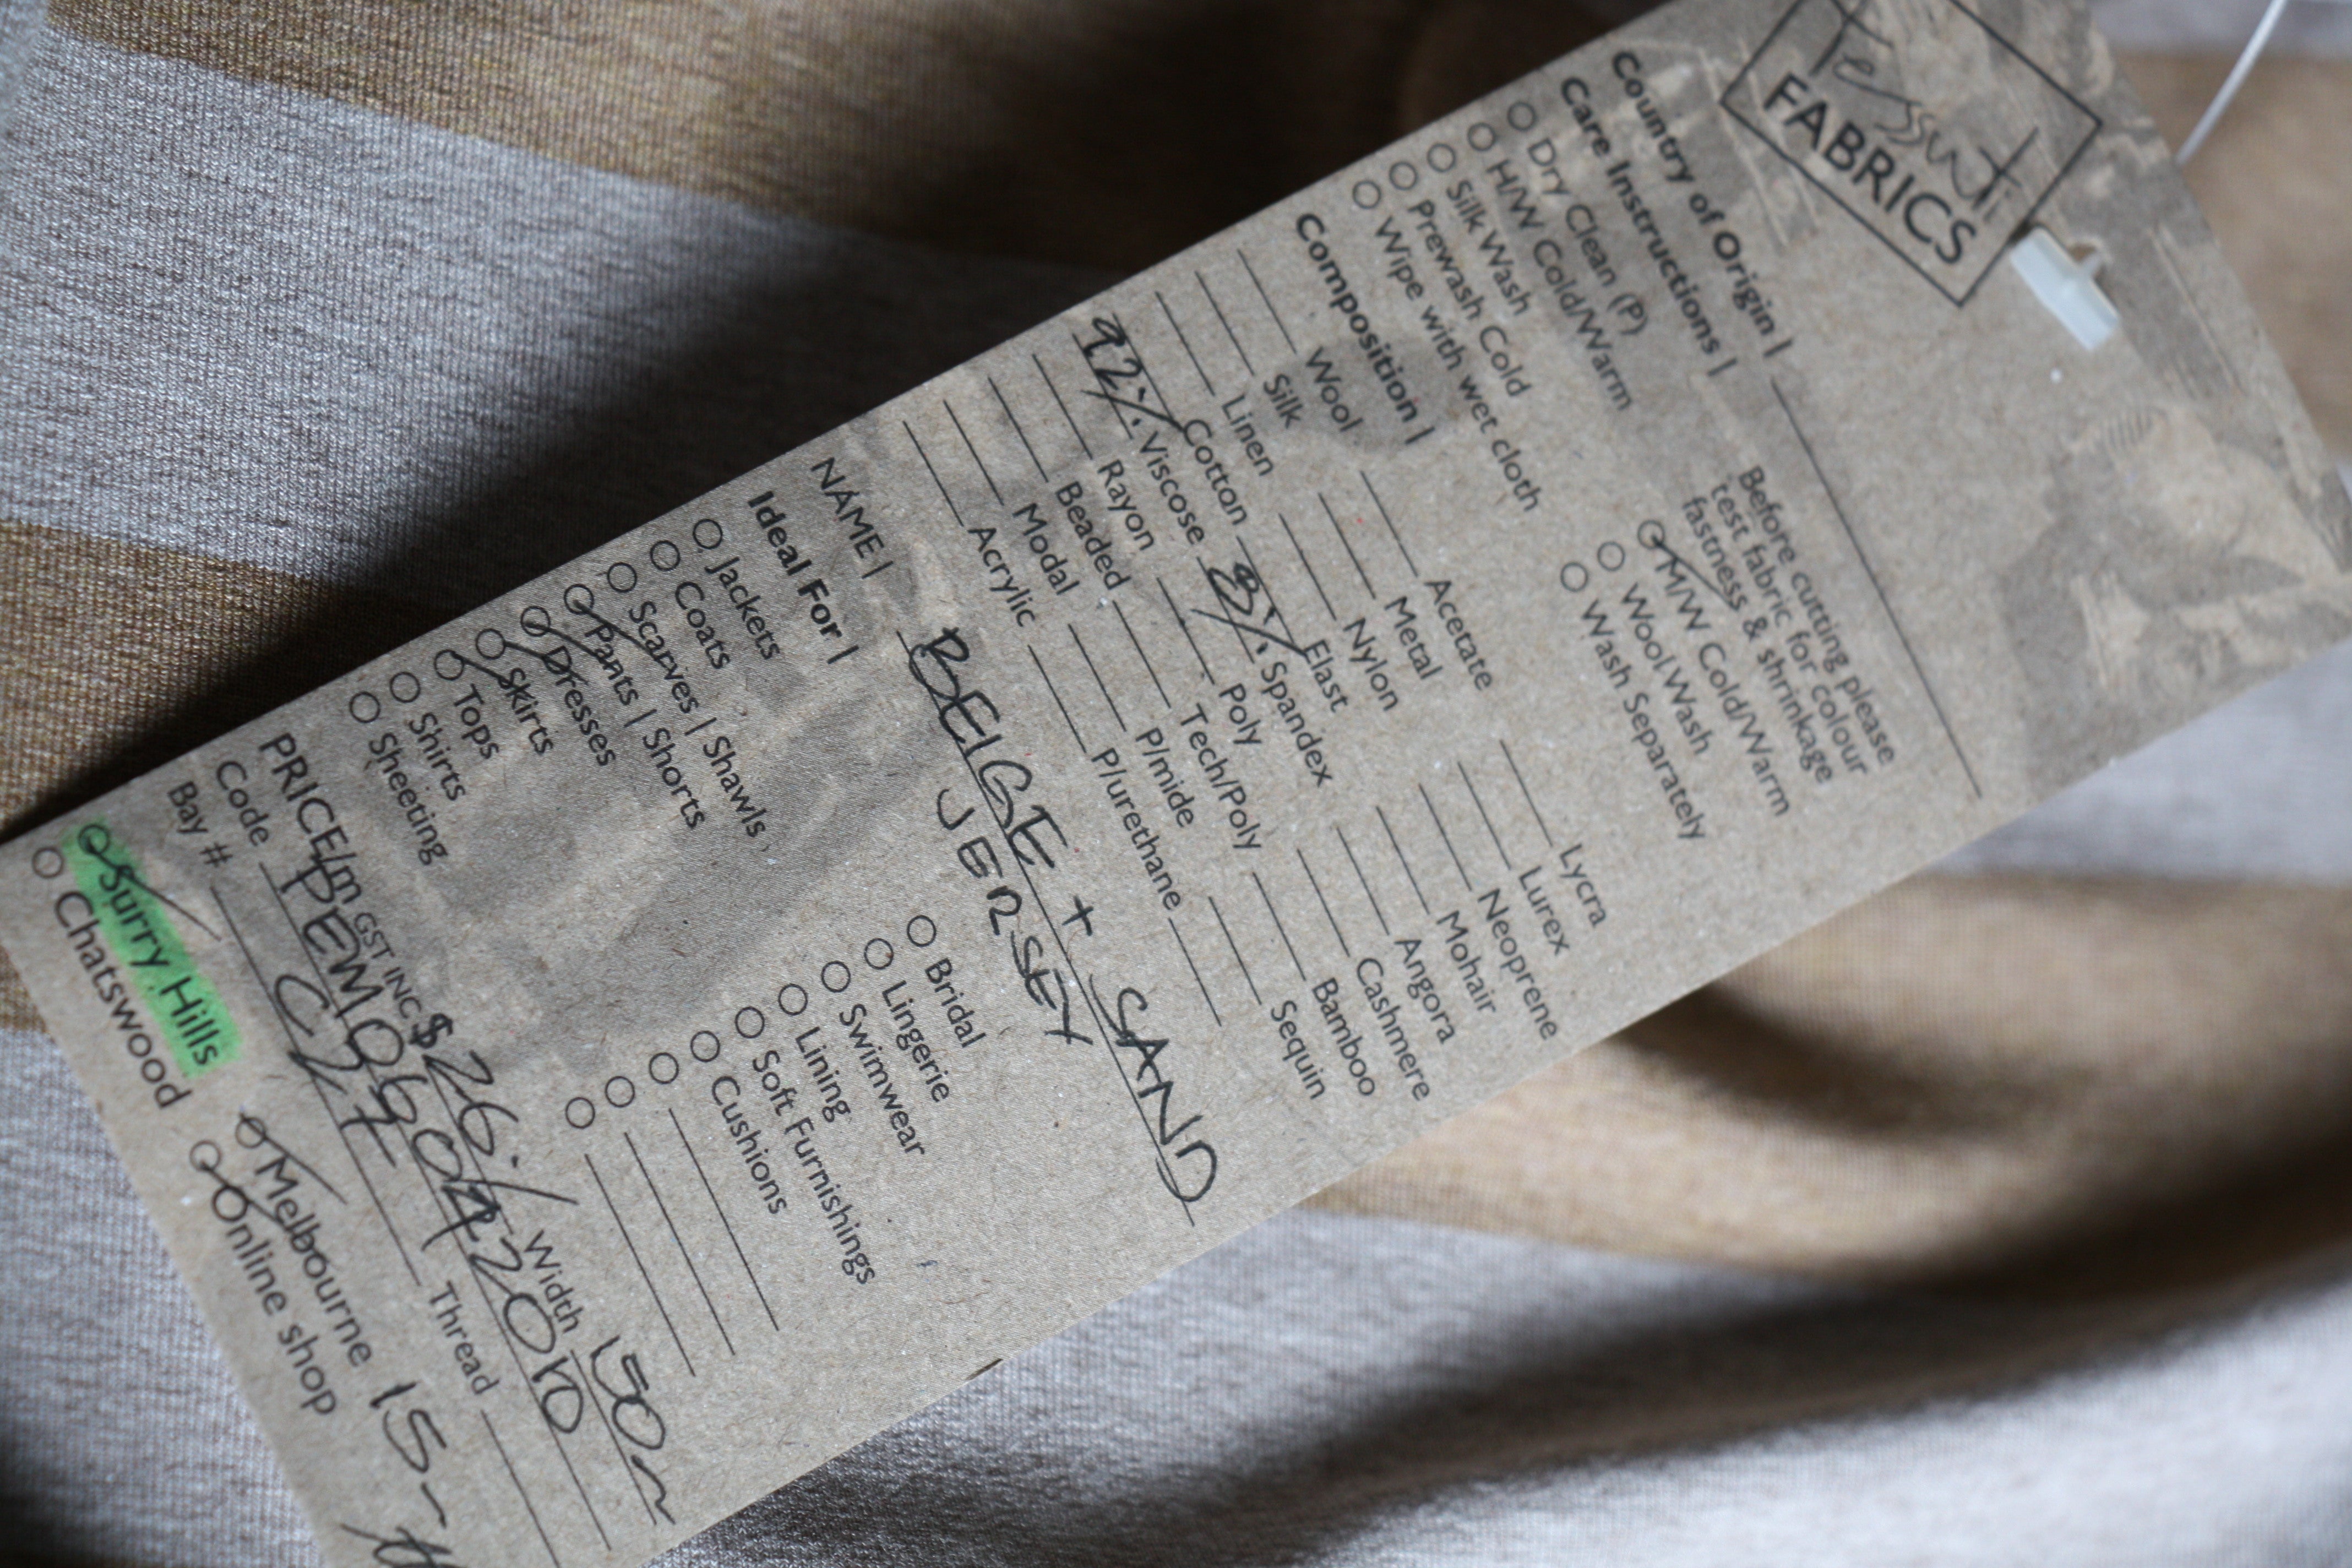 Tessuti
FABRICS
Country of Origin |
Care Instructions |
Before cutting please
test fabric for colour
fastness & shrinkage
Dry Clean (P)
H/W Cold/Warm
Silk Wash
Prewash Cold
Wipe with wet cloth
M/W Cold/Warm
Wool Wash
Wash Separately
Composition |
Wool Acetate Lycra
Silk Metal Lurex
Linen Nylon Neoprene
Cotton Elast Mohair
92% Viscose 8% Spandex Angora
Rayon Poly Cashmere
Beaded Tech/Poly Bamboo
Modal P/mide Sequin
Acrylic P/urethane
NAME | BEIGE + SAND
JERSEY
Ideal For |
Jackets Bridal
Coats Lingerie
Scarves | Shawls Swimwear
Pants | Shorts Lining
Dresses Soft Furnishings
Skirts Cushions
Tops
Shirts
Sheeting
PRICE/m GST INC $26·/ Width 150
Code
Bay # Thread
Surry Hills Melbourne 15
Chatswood Online shop